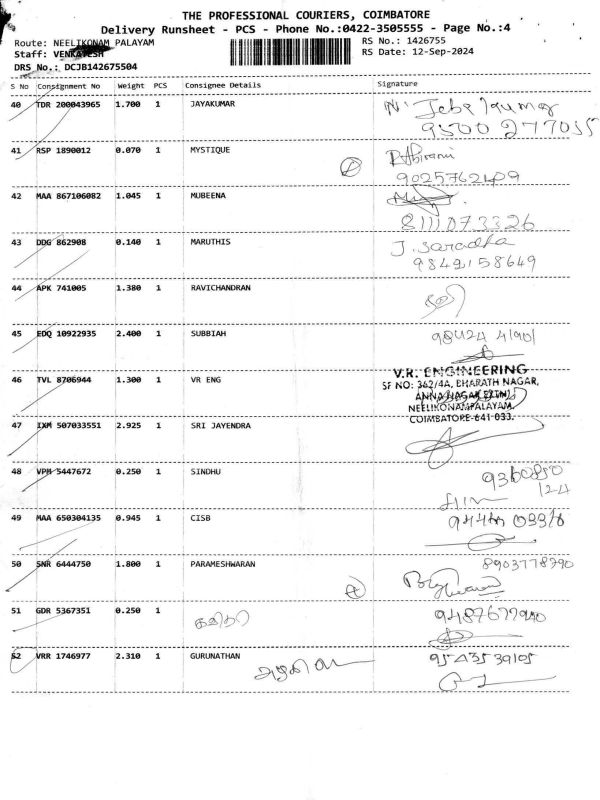 THE PROFESSIONAL COURIERS, COIMBATORE
Delivery Runsheet - PCS - Phone No.:0422-3505555 - Page No.:4
Route: NEELIKONAM PALAYAM
RS No.: 1426755
Staff: VENKATESH
RS Date: 12-Sep-2024
DRS No.: DCJB142675504
S No Consignment No Weight PCS Consignee Details Signature
40 TDR 200043965 1.700 1 JAYAKUMAR
9500277055
41 RSP 1890012 0.070 1 MYSTIQUE
9025762409
42 MAA 867106082 1.045 1 MUBEENA
8111073326
43 DDG 862908 0.140 1 MARUTHIS J. Saradha
9842158649
44 APK 741005 1.380 1 RAVICHANDRAN
45 EDQ 10922935 2.400 1 SUBBIAH
V.R. ENGINEERING
46 TVL 8706944 1.300 1 VR ENG SF NO: 362/4A, BHARATH NAGAR,
ANNA NAGAR
NEELIKONAMPALAYAM,
COIMBATORE-641 033.
47 IXM 507033551 2.925 1 SRI JAYENDRA
48 VPM 5447672 0.250 1 SINDHU
49 MAA 650304135 0.945 1 CISB
50 SNR 6444750 1.800 1 PARAMESHWARAN 8903778790
51 GDR 5367351 0.250 1
52 VRR 1746977 2.310 1 GURUNATHAN 9543539105